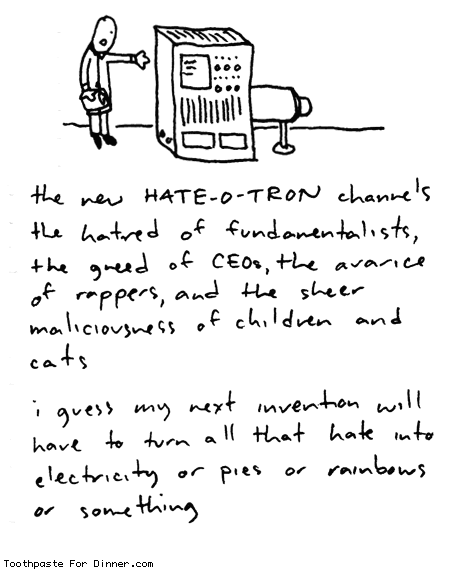 the new HATE-O-TRON channels
the hatred of fundamentalists,
the greed of CEOs, the avarice
of rappers, and the sheer
maliciousness of children and
cats
i guess my next invention will
have to turn all that hate into
electricity or pies or rainbows
or something
Toothpaste For Dinner.com